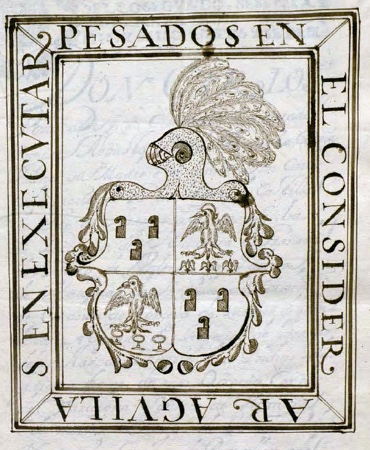 PESADOS EN
EL CONSIDER
AR AGVILA
S EN EXECVTAR